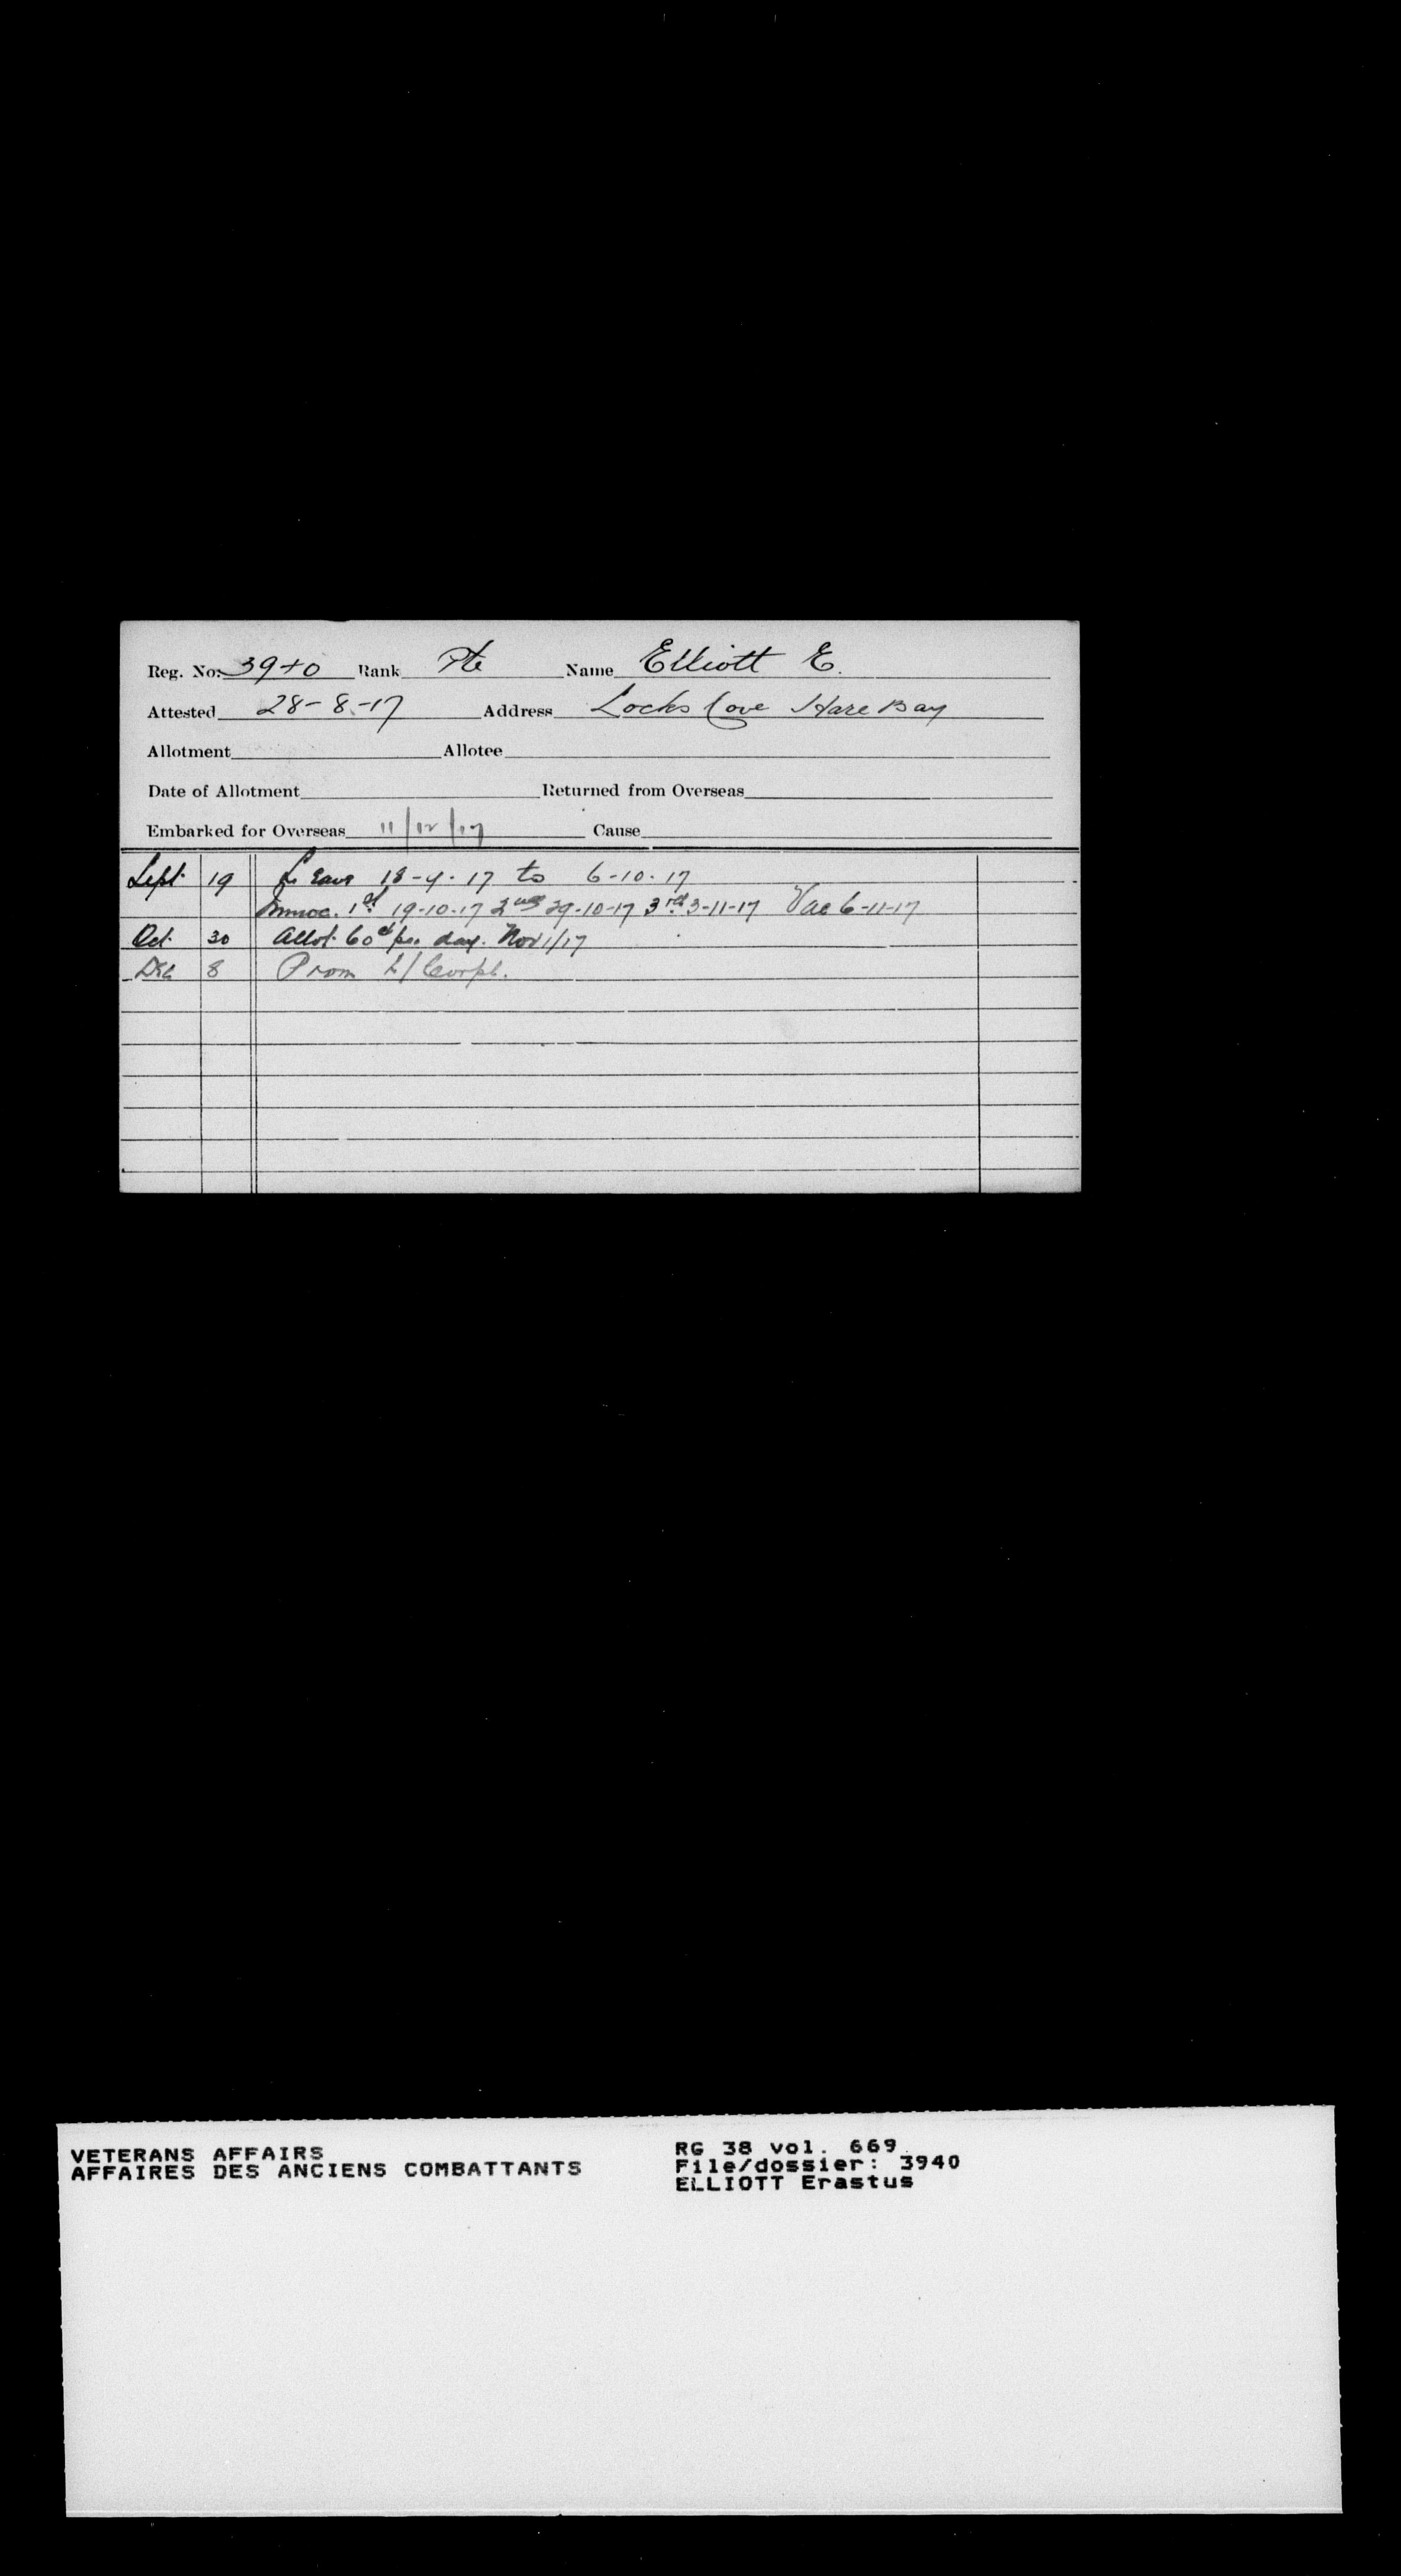 Reg. No. 3940 Rank Pte Name Elliott E.
Attested 28-8-17 Address Locks Cove Hare Bay
Allotment Allotee
Date of Allotment Returned from Overseas
Embarked for Overseas 11/12/17 Cause
Sept 19 Leave 18-9-17 to 6-10-17
Innoc. 1st 19-10-17 2nd 29-10-17 3rd 3-11-17 Vac 6-11-17
Oct 30 Allot. 60c per day. Nov 1/17
Dec 8 Prom L/Corpl.
VETERANS AFFAIRS
AFFAIRES DES ANCIENS COMBATTANTS
RG 38 vol. 669
File/dossier: 3940
ELLIOTT Erastus